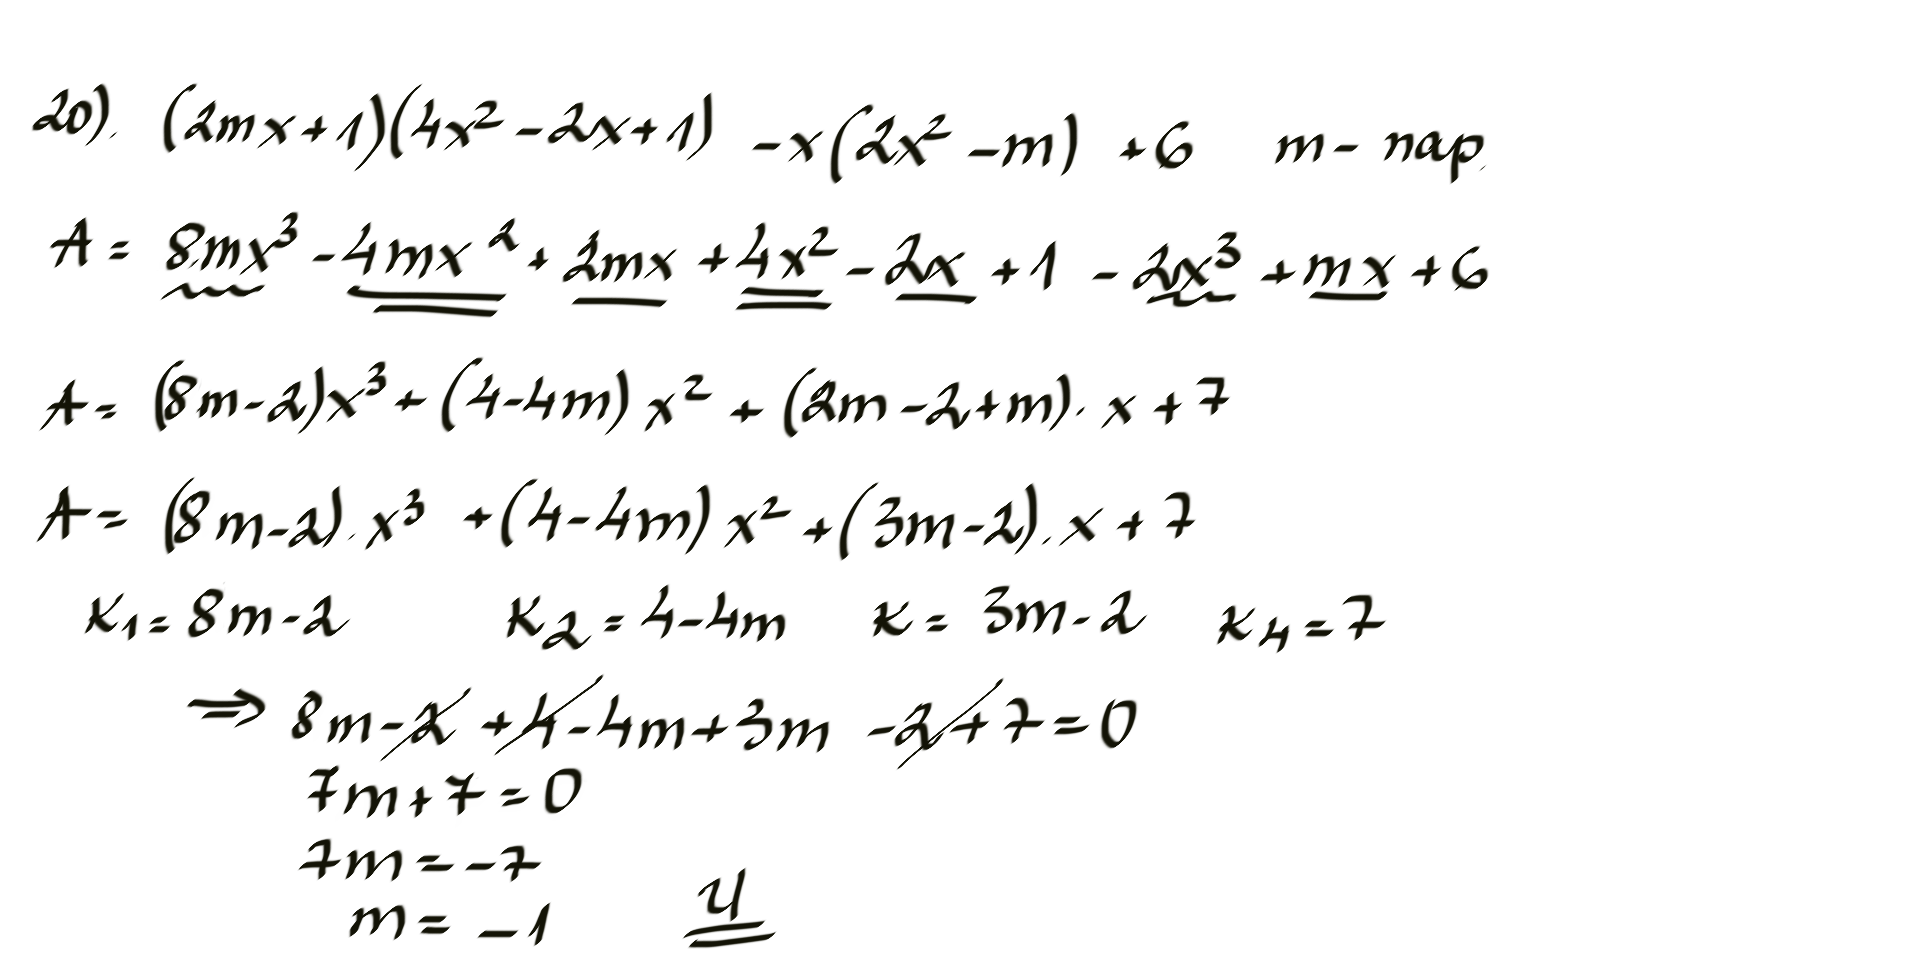 20). (2mx+1)(4x²-2x+1) -x(2x²-m) +6 m- пар.
A = 8mx³ -4mx² + 2mx +4x² -2x +1 -2x³ +mx +6
A = (8m-2)x³ + (4-4m) x² + (2m-2+m). x +7
A = (8m-2). x³ +(4-4m) x² +(3m-2). x +7
K₁ = 8m-2 K₂ = 4-4m K = 3m-2 K₄ = 7
⇒ 8m-2 +4-4m+3m -2+7=0
7m+7=0
7m=-7
m= -1 И